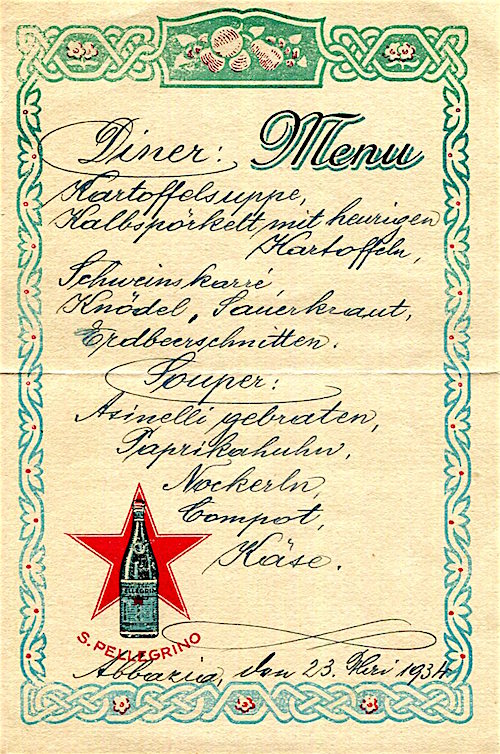 Menu
Diner:
Kartoffelsuppe,
Kalbspörkelt mit heurigen
Kartoffeln,
Schweinskarré,
Knödel, Sauerkraut,
Erdbeerschnitten.
Souper:
Asinelli gebraten,
Paprikahuhn,
Nockerln,
Compot,
Käse.
PELLEGRIN
S. PELLEGRINO
Abbazia, den 23. 1934